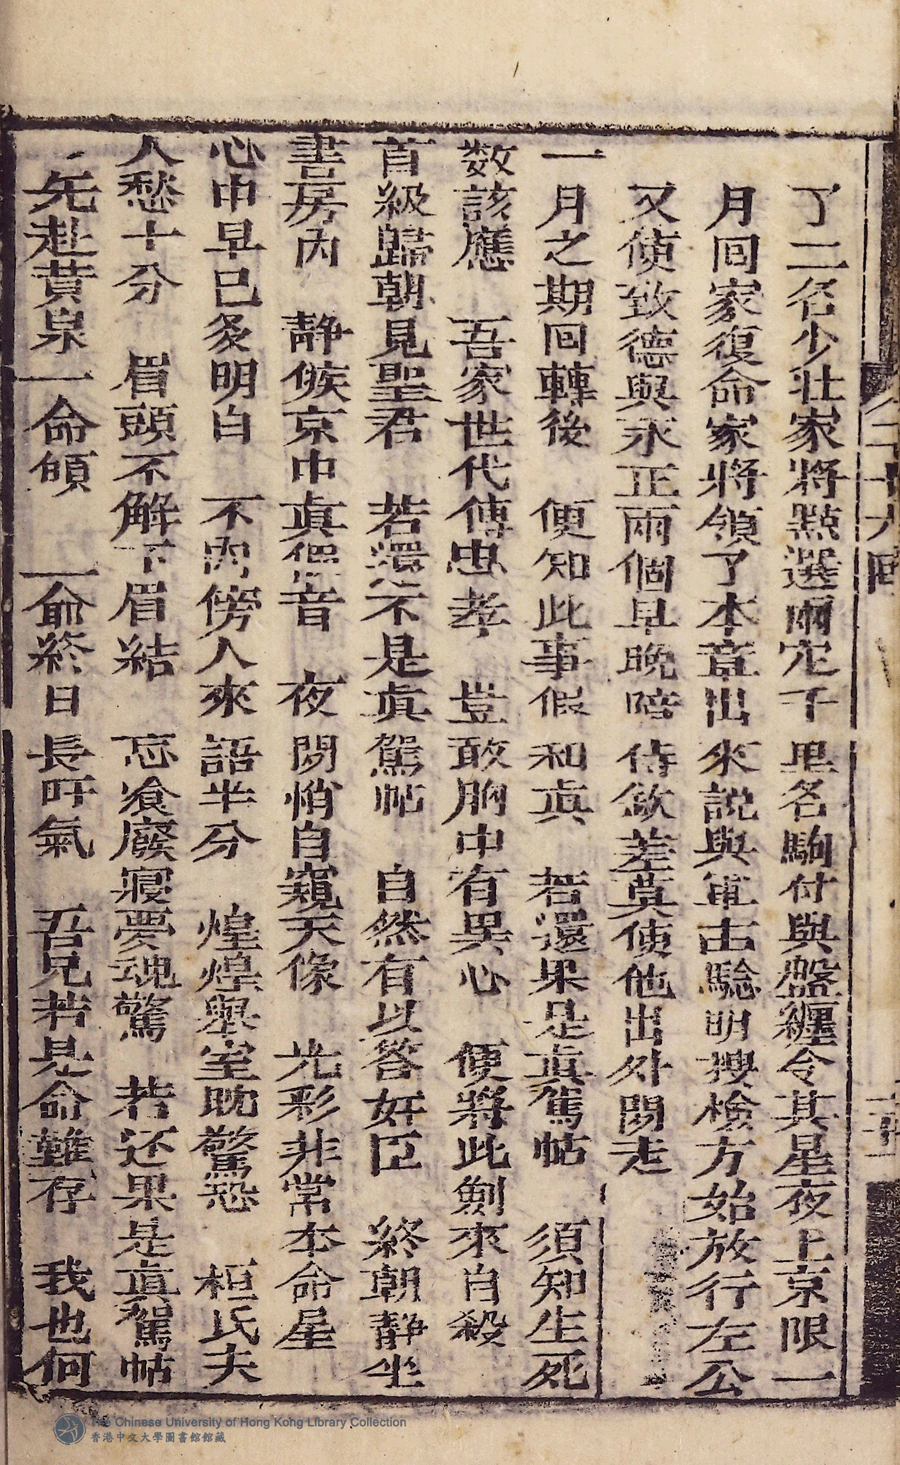 了二名少壯家將㸃選兩定千里名駒付與盤纏令其星夜上京限一
月回家復命家將領了本章出來説與軍士驗明搜檢方始放行左公
又使致德與永正兩個早晚陪侍欽差莫使他出外閒走
一月之期回轉後 便知此事假和真 若還果是真駕帖 須知生死
数該應 吾家世代傳忠孝 豈敢胸中有異心 便將此劍來自殺
首級歸朝見聖君 若還不是真駕帖 自然有以答奸臣 終朝静坐
書房内 静候京中真信音 夜間悄自窺天像 光彩非常本命星
心中早已多明白 不向傍人來語半分 煌煌舉室耽驚恐 桓氏夫
人愁十分 眉頭不解下眉結 忘飧廢寢夢魂驚 若还果是真駕帖
先赴黄泉一命傾 一爺終日長吁氣 吾兄若是命難存 我也何
二十九回
The Chinese University of Hong Kong Library Collection
香港中文大學圖書館館藏